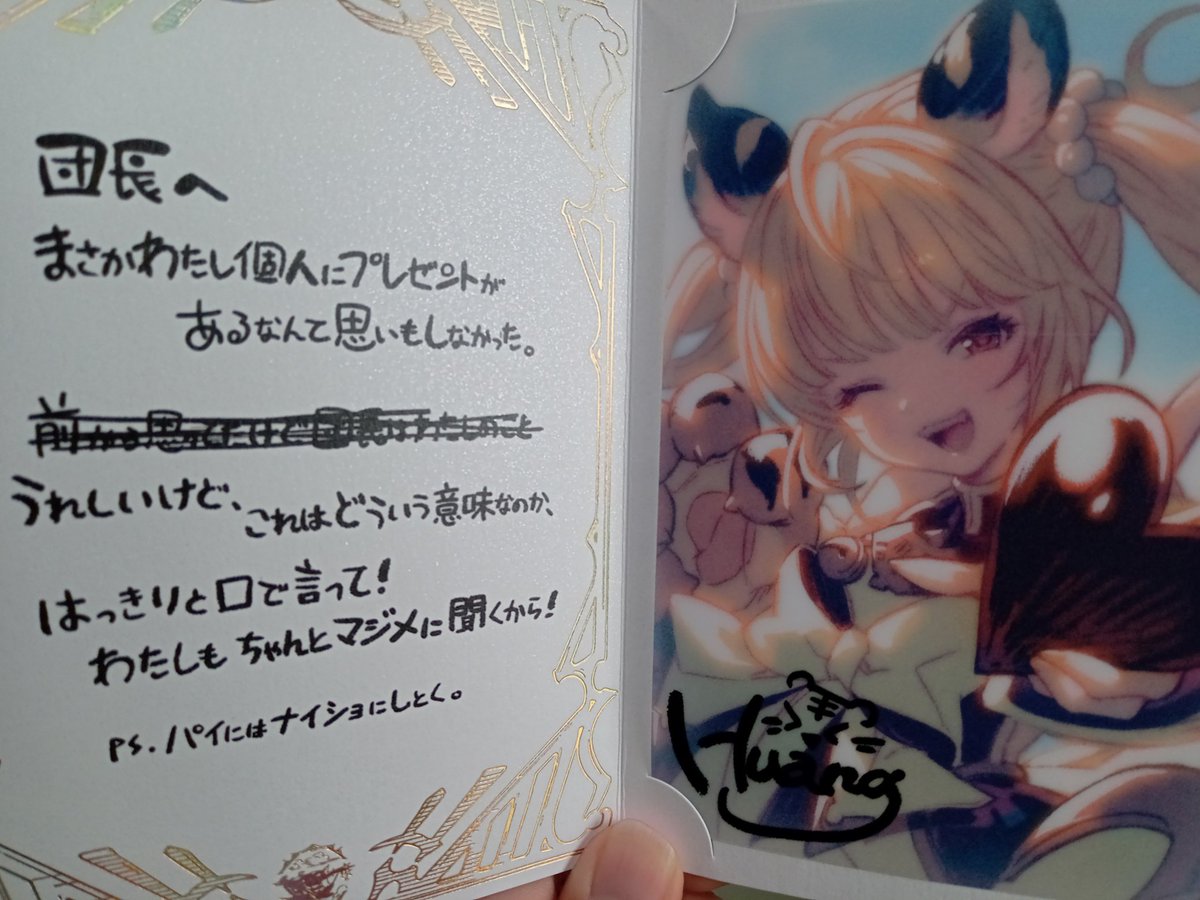 団長へ
まさかわたし個人にプレゼントが
あるなんて思いもしなかった。
前から思ってたけど団長はわたしのこと
うれしいけど、これはどういう意味なのか、
はっきりと口で言って！
わたしもちゃんとマジメに聞くから！
PS.パイにはナイショにしとく。
Huang